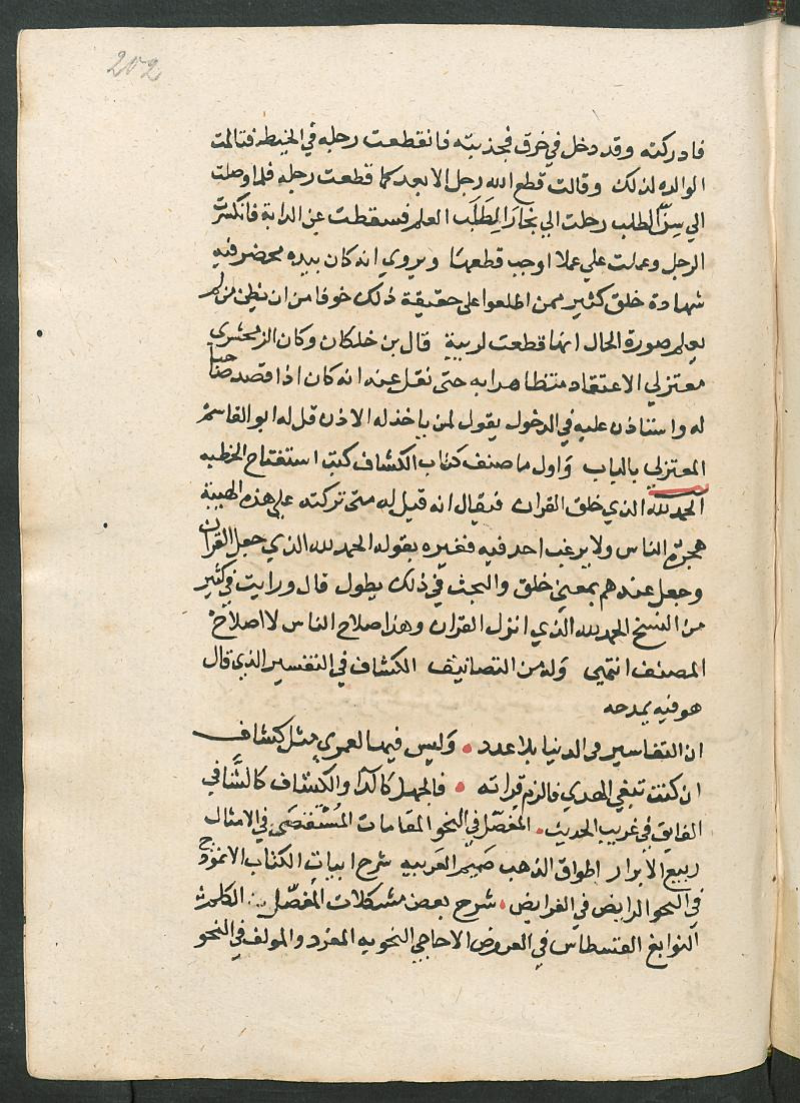 202
فادركته وقد دخل في خرق فجذبته فانقطعت رجله في الخيط فتالمت
الوالده لذلك وقالت قطع الله رجل الابعد كما قطعت رجله فلما وصلت
الي سن الطلب رحلت الي بخارا لطلب العلم فسقطت عن الدابة فانكسرت
الرجل وعملت علي عملا اوجب قطعها ويروي انه كان بيده محضر فيه
شهادة خلق كثير ممن اطلعوا على حقيقة ذلك خوفا من ان يظن من لم
يعلم صورة الحال انها قطعت لريبة قال بن خلكان وكان الزمخشري
معتزلي الاعتقاد متظاهرا به حتى نقل عنه انه كان اذا قصد صاحبا
له واستاذن عليه في الدخول يقول لمن ياخذ له الاذن قل له ابو القاسم
المعتزلي بالباب واول ما صنف كتاب الكشاف كتب استفتاح الخطبه
الحمد لله الذي خلق القران فيقال انه قيل له متى تركته على هذه الهيبة
هجره الناس ولا يرغب احد فيه فغيره بقوله الحمد لله الذي جعل القران
وجعل عندهم بمعني خلق والبحث في ذلك يطول قال ورايت في كثير
من النسخ الحمد لله الذي انزل القران وهذا صلاح الناس لا اصلاح
المصنف انتهي وله من التصانيف الكشاف في التفسير الذي قال
هو فيه يمدحه
ان التفاسير في الدنيا بلا عدد وليس فيها لعمري مثل كشاف
ان كنت تبغي الهدي فالزم قراته فالجهل كالدا والكشاف كالشافي
الفايق في غريب الحديث المفصل في النحو المقامات المستقصى في الامثال
ربيع الابرار اطواق الذهب صميم العربيه شرح ابيات الكتاب الانموذج
في النحو الرايض في الفرايض شرح بعض مشكلات المفصل الكلم
النوابغ القسطاس في العروض الاحاجي النحويه المفرد والمولف في النحو